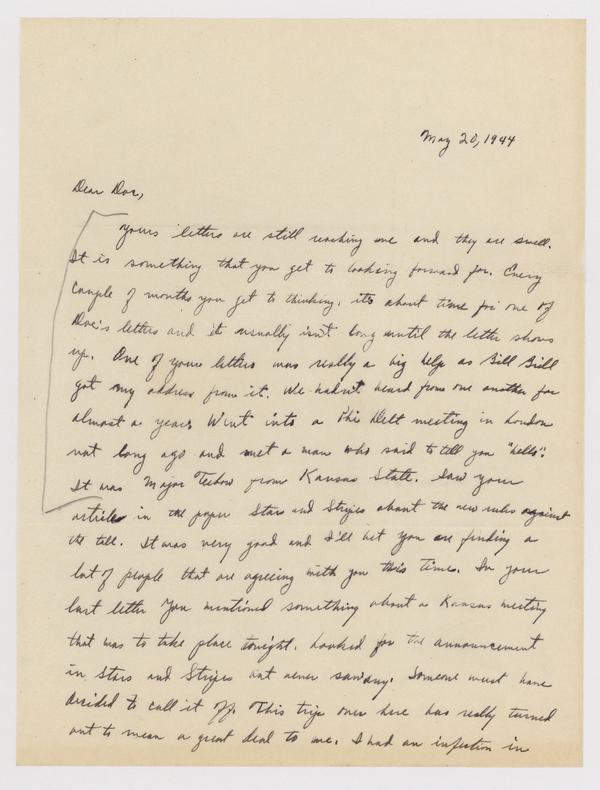 May 20, 1944
Dear Doc,
Yours letters are still reaching me and they are swell.
It is something that you get to looking forward for. Every
couple of months you get to thinking, it's about time for one of
Doc's letters and it usually isn't long until the letter shows
up. One of yours letters was really a big help as Bill
got my address from it. We hadn't heard from one another for
almost a year. Went into a Phi Delt meeting in London
not long ago and met a man who said to tell you "hello".
It was Major from Kansas State. Saw your
article in the paper Stars and Stripes about the new rules against
the tall. It was very good and I'll bet you are finding a
lot of people that are agreeing with you this time. In your
last letter you mentioned something about a Kansas meeting
that was to take place tonight. Looked for the announcement
in Stars and Stripes but never saw any. Someone must have
decided to call it off. This trip over here has really turned
out to mean a great deal to me. I had an infection in